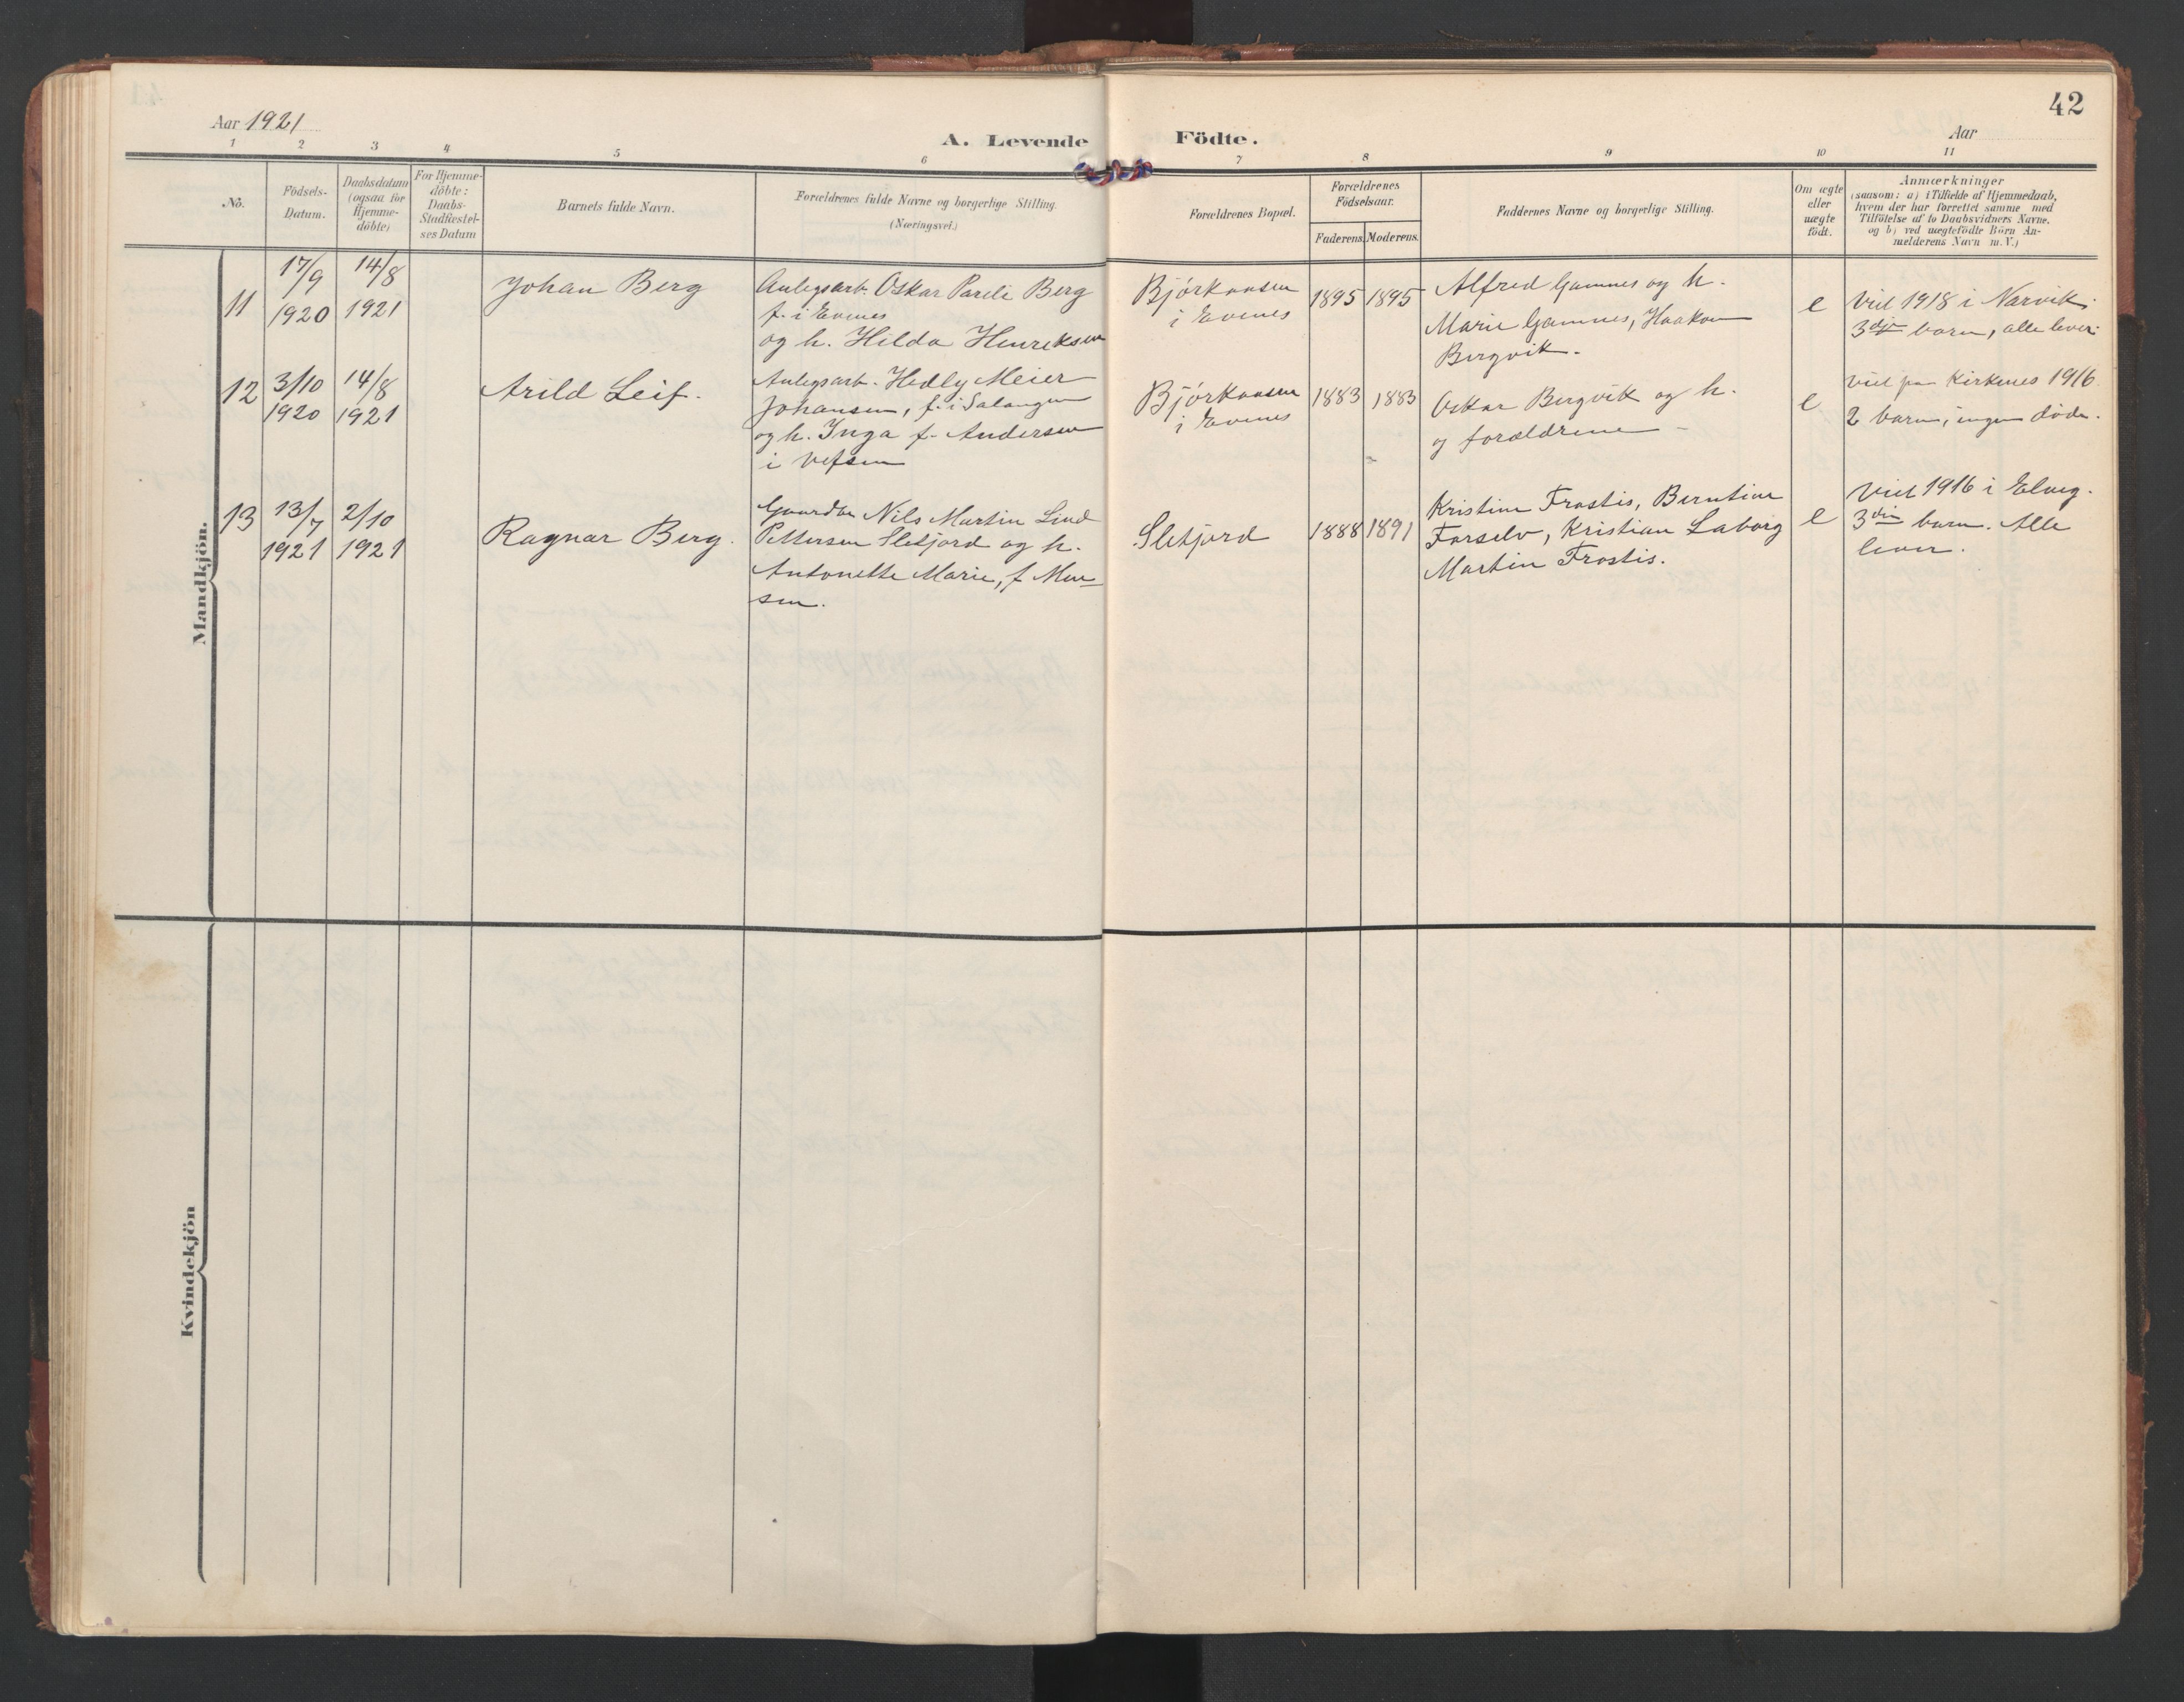 42
Aar 1921
A. Levende Födte.
Aar
1 2 3 4 5 6 7 8 9 10 11
No.
Födsels-
Datum.
Daabsdatum
(ogsaa for
Hjemme-
döbte)
For Hjemme-
döbte:
Daabs-
Stadfæstel-
ses Datum
Barnets fulde Navn.
Forældrenes fulde Navne og borgerlige Stilling.
(Næringsvei.)
Forældrenes Bopæl.
Forældrenes
Födselsaar.
Faderens. Moderens.
Faddernes Navne og borgerlige Stilling.
Om ægte
eller
uægte
födt.
Anmærkninger
(saasom: a) i Tilfælde af Hjemmedaab,
hvem der har forrettet samme med
Tilföielse af to Daabsvidners Navne,
og b) ved uægtefödte Börn An-
melderens Navn m. V.)
Mandkjön.
11
17/9
1920
14/8
1921
Johan Berg
Anlegsarb. Oskar Pareli Berg
f. i Evenes
og h. Hilda Henriksen
Bjørkaasen
i Evenes
1895 1895
Alfred Gamnes og h.
Marie Gamnes, Haakon
Bergvik.
e
Viet 1918 i Narvik.
3die barn, alle lever.
12
3/10
1920
14/8
1921
Arild Leif.
Anlegsarb. Hedly Meier
Johansen, f. i Salangen
og h. Inga f. Andersen
i Vefsen
Bjørkaasen
i Evenes
1883 1883
Oskar Bergvik og h.
og forældrene
e
viet paa Kirkenes 1916
2 barn, ingen døde.
13
13/7
1921
2/10
1921
Ragnar Berg.
Gaardbr Nils Martin Lind
Pettersen Sletjord og h.
Antonette Marie, f.
Sletjord
1888 1891
Kristine Frostis, Berntine
Forselv, Kristian Laborg
Martin Frostis.
e
Viet 1916 i Elveg.
3die barn. Alle
lever.
Kvindekjön